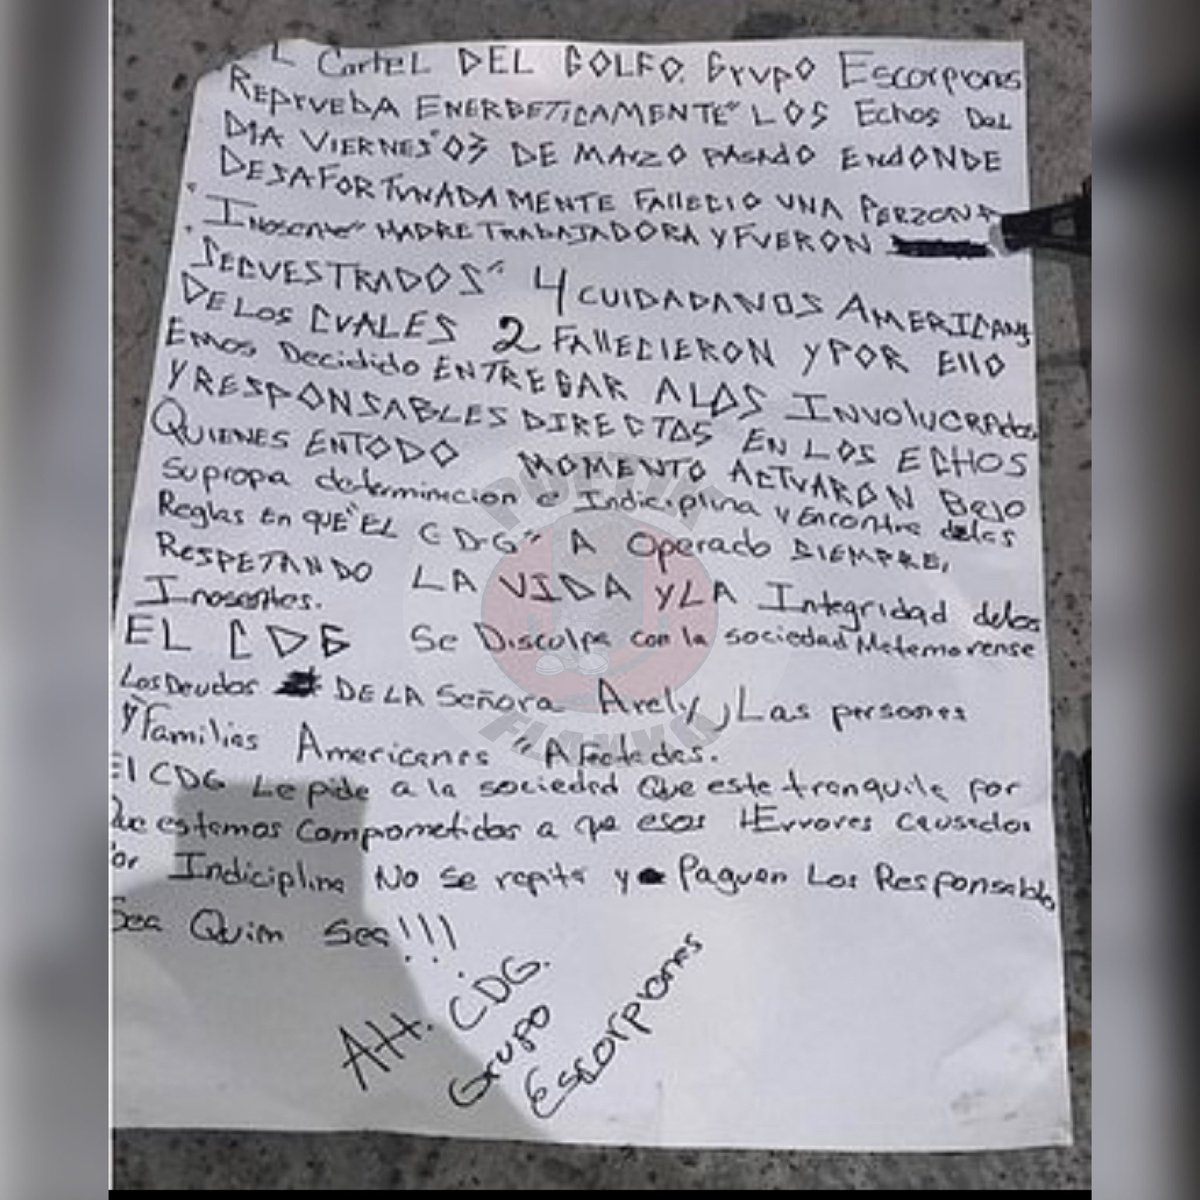 L Cartel DEL GOLFO. Grupo Escorpiones
REPrUEBA ENERGETICAMENTE" LOS Echos DEL
DIA VIERNES" 03 DE MARZO PASADO ENdONDE
DESAFORTUNADAMENTE FALLECIO UNA PERZONA
"INosente" MADRE TRABAJADORA Y FUERON
SECUESTRADOS" 4 CUIDADANOS AMERICANS
DE LOS CUALES 2 FALLECIERON Y POR Ello
Emos Decidido ENTREGAR A LOS INVOLUCRADos
Y RESPONSABLES DIRECTOS EN LOS ECHOS
QUIENES EN TODO MOMENTO ACTUARON BAJO
Su propa determinacion e Indiciplina y encontra delas
Reglas En QUE "EL CDG" A Operado SIEMPRE,
RESPETANDO LA VIDA Y LA Integridad delos
Inosentes.
EL CDG Se Disculpa con la sociedad Matamorense
Los Deudos DE LA Señora Arely, Las personas
Y Familias Americanas "Afectadas.
El CDG Le pide a la sociedad Que este tranquila por
Que estamos comprometidos a que esos Errores causados
Por Indiciplina No se repita y Paguen Los Responsables
Sea Quim Sea!!!
Att. CDG.
Grupo
Escorpiones